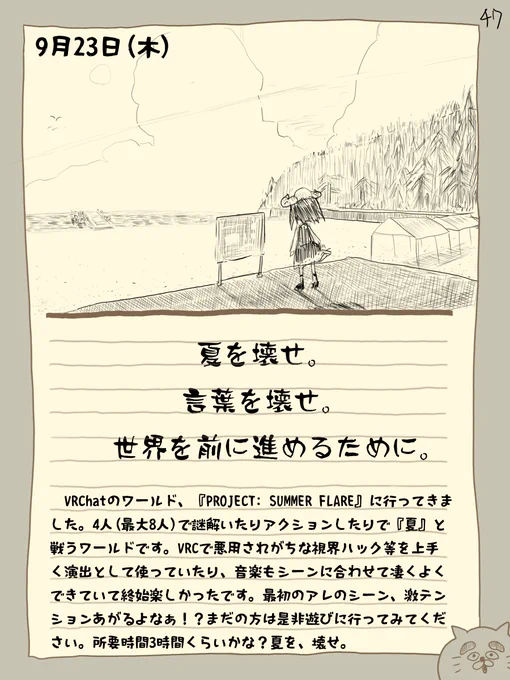 47
9月23日(木)
夏を壊せ。
言葉を壊せ。
世界を前に進めるために。
VRChatのワールド、『PROJECT: SUMMER FLARE』に行ってきま
した。4人(最大8人)で謎解いたりアクションしたりで『夏』と
戦うワールドです。VRCで悪用されがちな視界ハック等を上手
く演出として使っていたり、音楽もシーンに合わせて凄くよく
できていて終始楽しかったです。最初のアレのシーン、激テン
ションあがるよなぁ!?まだの方は是非遊びに行ってみてくだ
さい。所要時間3時間くらいかな?夏を、壊せ。